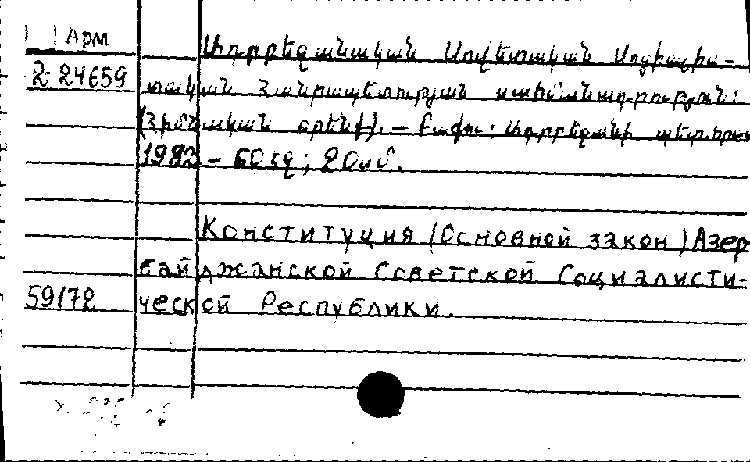 Арм
Ադրբեջանական Սովետական Սոցիալիս-
2 24659 տական Հանրապետության սահմանադրություն:
(Հիմնական օրենք). — Բաքու: Ադրբեջանի պետհրատ
1982 – 60 էջ; 20սմ.
Конституция (Основной закон) Азер
байджанской Советской Социалисти-
59172 ческой Республики.